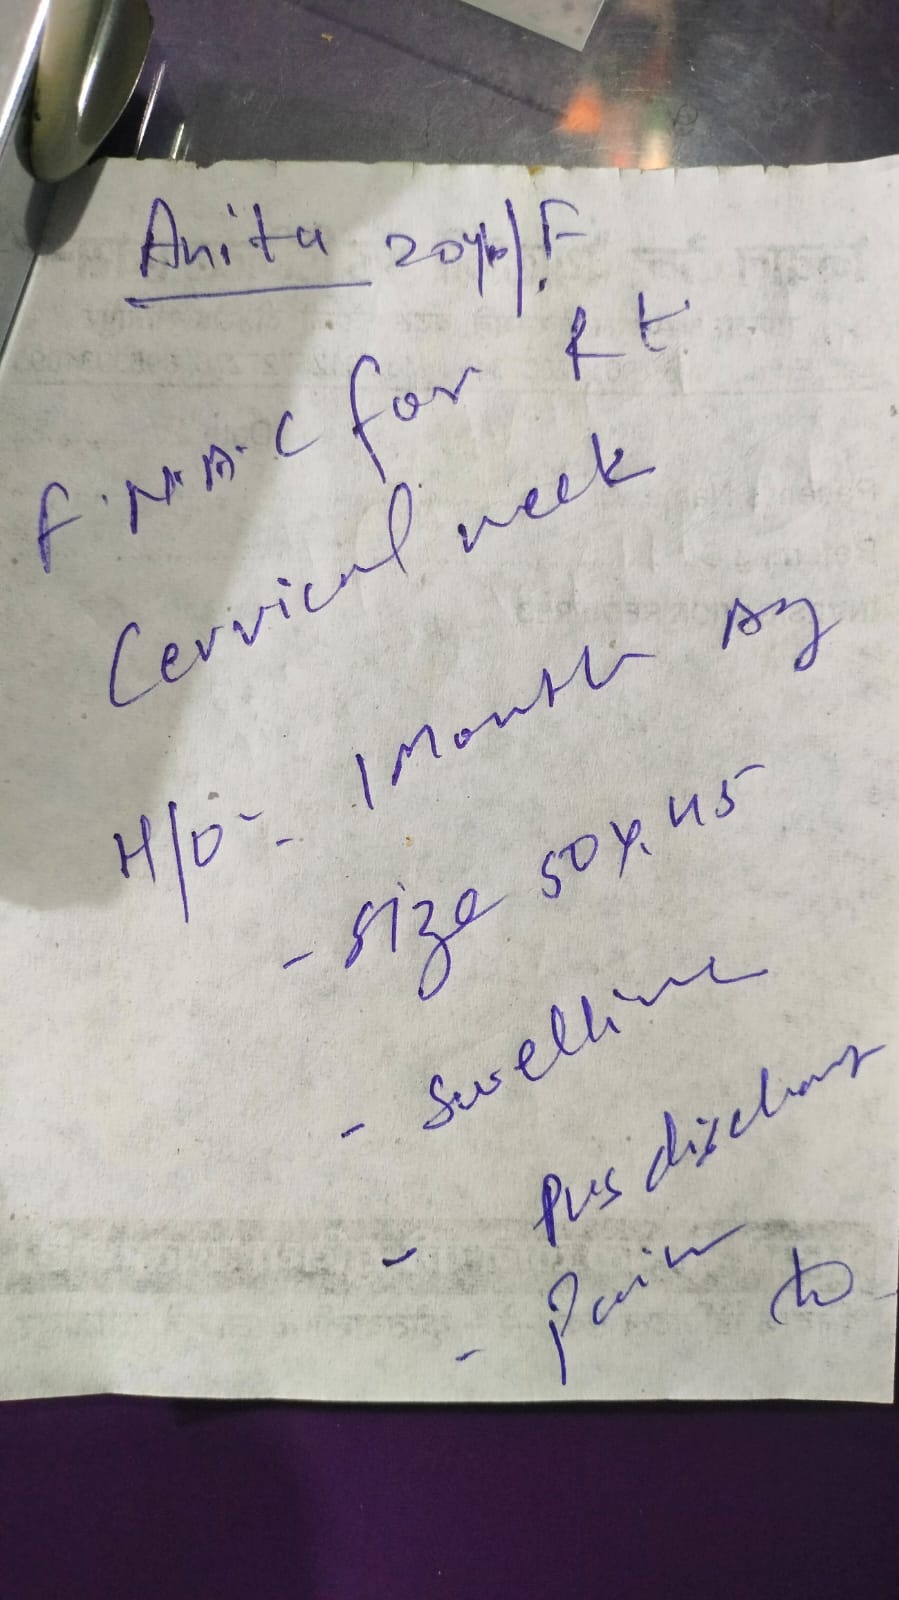 Anita 20y/F
F.N.A.C for Rt
Cervical neck
H/O - 1 Month Ag
- Size 50 x 45
- Swelling
- Pus discharg
- Pain